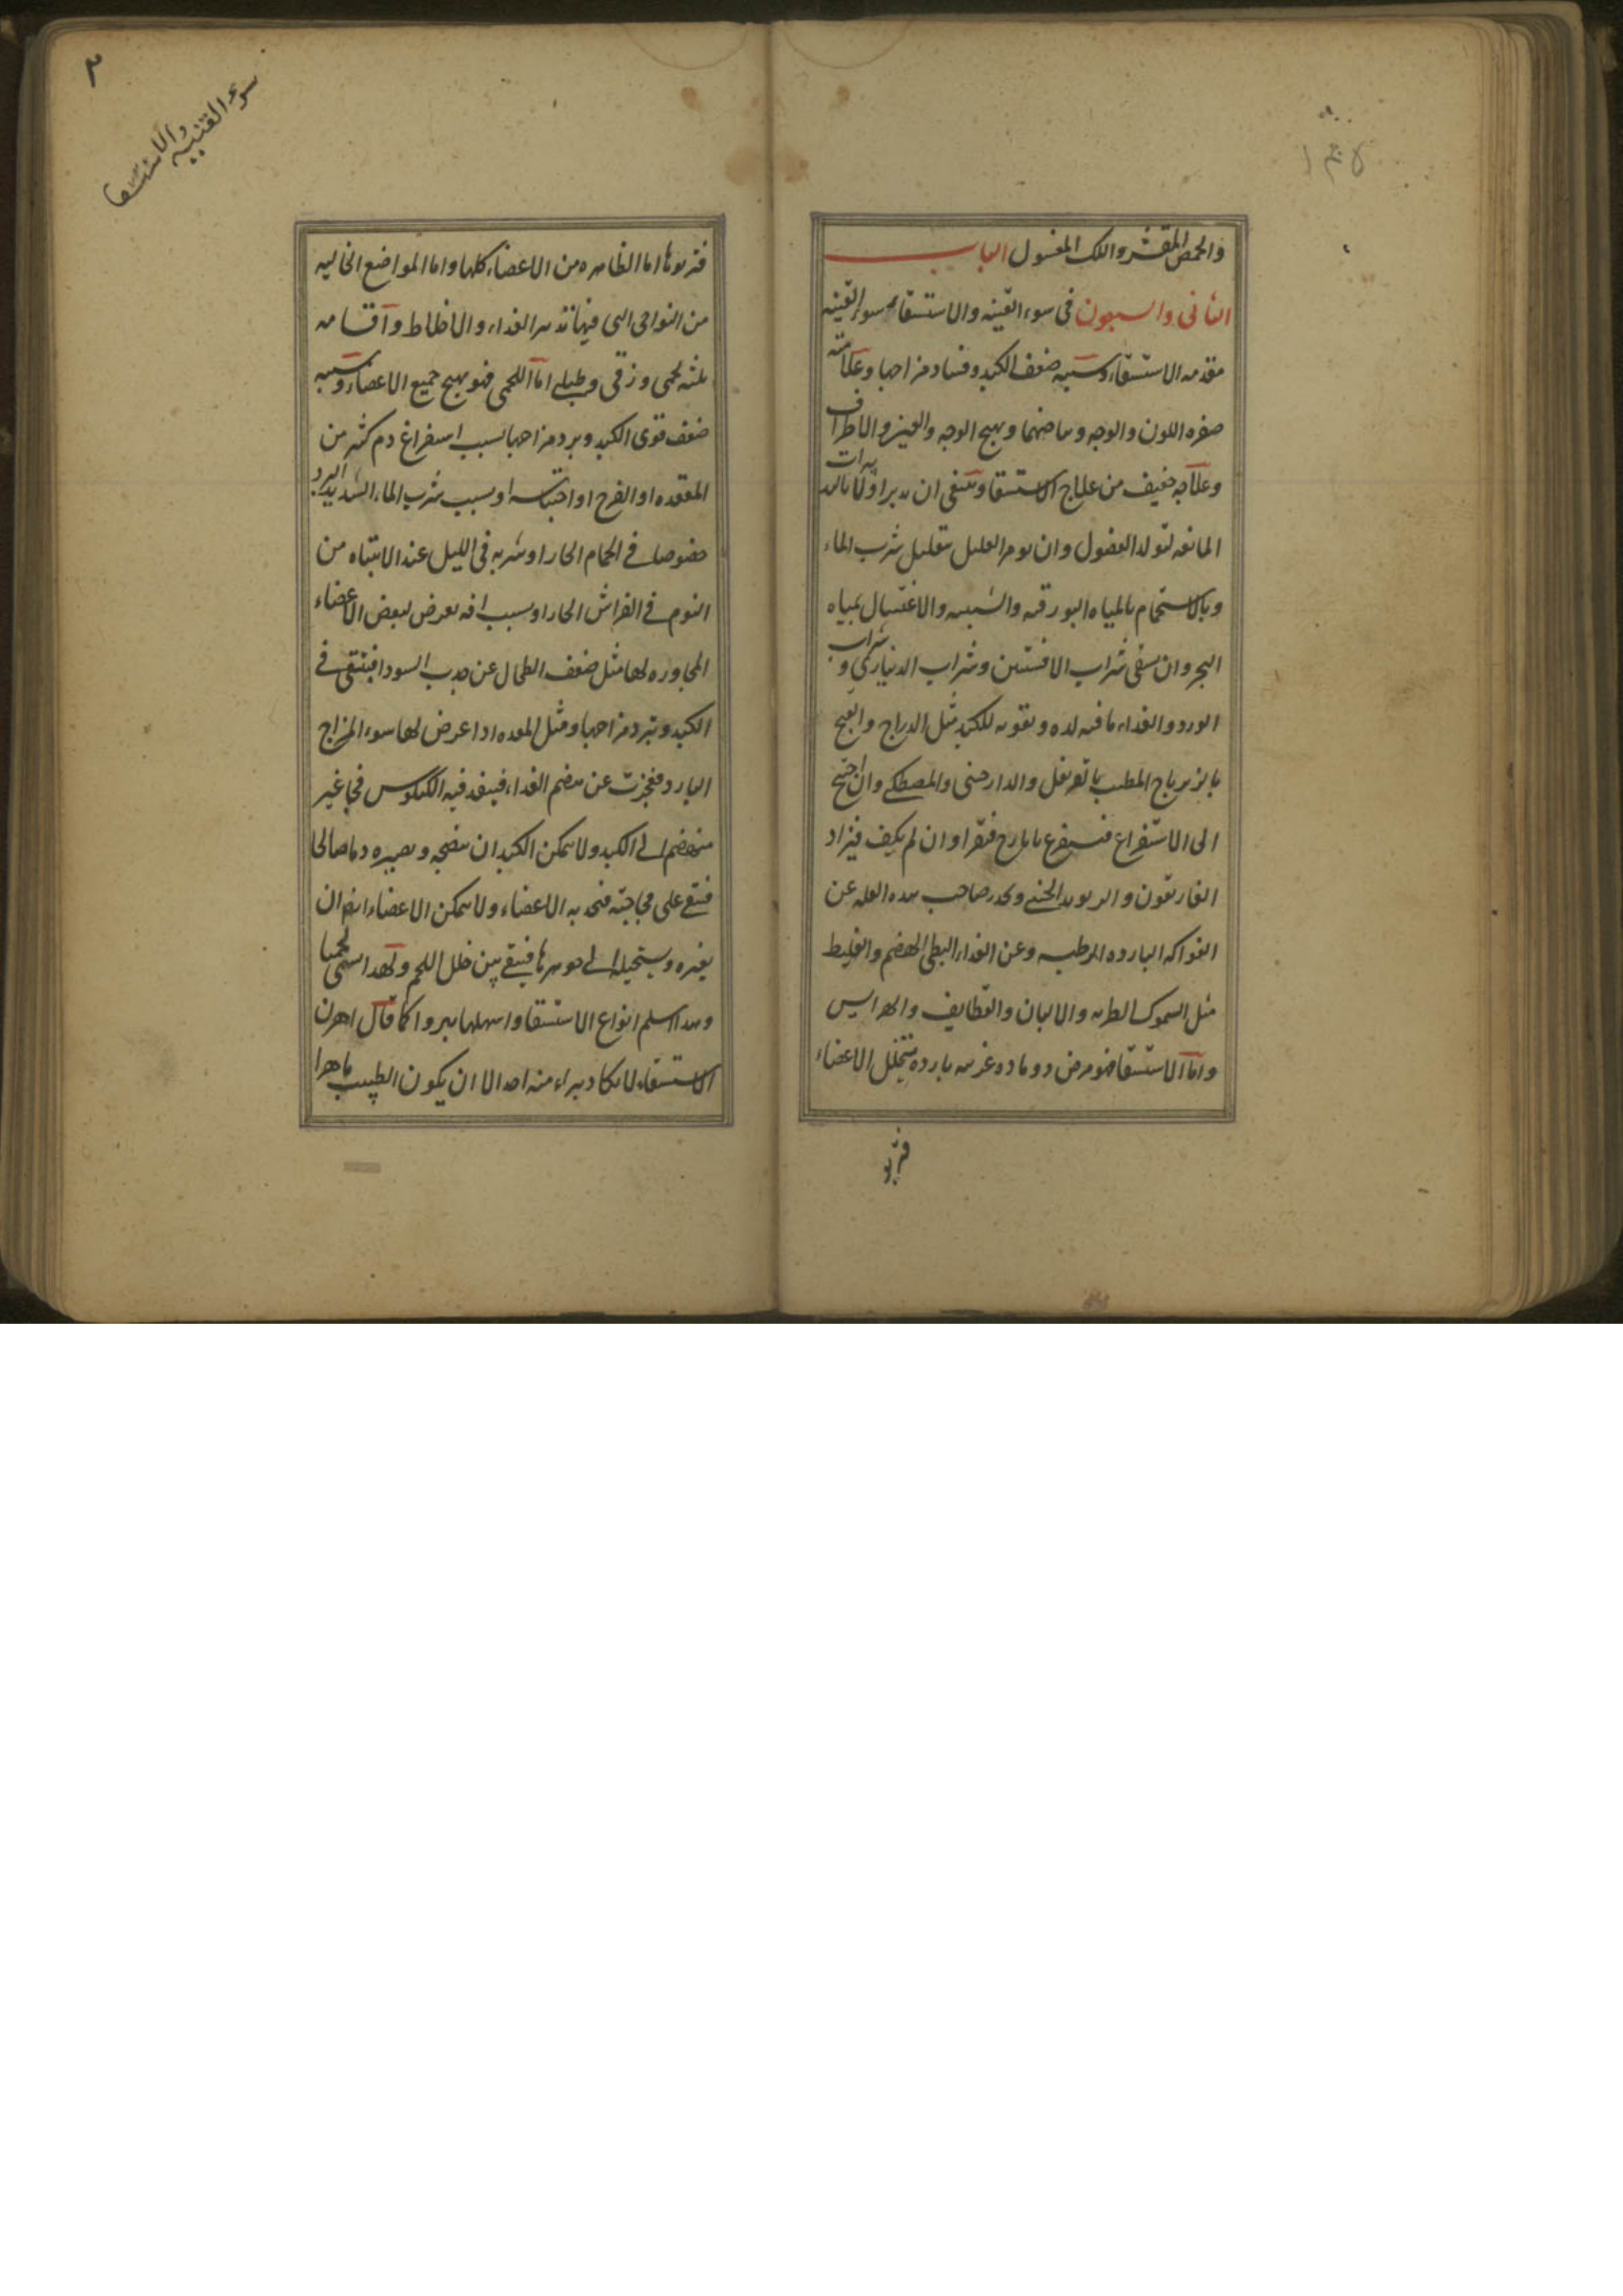 والحمص المقشر والлك المغسول الباب
الثانى والسبعون فى سوء القنيه والاستسقاء سوء القنيه
مقدمه الاستسقاء وسببه ضعف الكبد وفساد مزاجها وعلامته
صفره اللون والوجه وبياضهما وتهيج الوجه والعينين والاطراف
وعلاجه خفيف من علاج الاستسقا وينبغى ان يدبر اولا بالتدبيرات
المانعه لتولد الفضول وان يومر العليل بتقليل شرب الماء
وبالاستحمام بالمياه البورقيه والشبيه والاغتسال بمياه
البحر وان يسقى شراب الافسنتين وشراب الدينارى وشراب
الورد والغذاء ما فيه لذه وتقويه للكبد مثل الدراج والقبج
بالزيرباج المطيب بالقرنفل والدارصينى والمصطكى وان احتيج
الى الاستفراغ فيستفرغ بايارج فيقرا وان لم يكف فيزاد
الغاريقون والريوند الصينى وليحذر صاحب هذه العله عن
الفواكه البارده الرطبه وعن الغذاء البطى الهضم والغليظ
مثل السموك الطريه والالبان والقطايف والهرايس
واما الاستسقا فهو مرض ذو ماده غريبه بارده يتخلل الاعضاء
فتربو
٢
سوء القنيه
والاستسقا
فتربو بها اما الظاهره من الاعضاء كلها واما المواضع الخاليه
من النواحى التى فيها تدبير الغذاء والاخلاط واقسامه
ثلثه لحمى وزقى وطبلى اما اللحمى فهو تهيج جميع الاعضاء وسببه
ضعف قوى الكبد وبرد مزاجها بسبب استفراغ دم كثير من
المقعده او الفرج او احتباسه او بسبب شرب الماء الشديد البرد
خصوصا فى الحمام الحار او شربه فى الليل عند الانتباه من
النوم فى الفراش الحار او بسبب افه يعرض لبعض الاعضاء
المجاوره لها مثل ضعف الطحال عن جذب السودا فيبقى فى
الكبد وتبرد مزاجها ومثل المعده اذا عرض لها سوء المزاج
البارد فعجزت عن هضم الغذاء فينفذ فيه الكيلوس فجا غير
منهضم الى الكبد ولا يمكن الكبد ان ينضجه ويصيره دما صالحا
فيبقى على فجاجته فتجذبه الاعضاء ولا يمكن الاعضاء ايضا ان
يغيره ويستحيله الى جوهرها فيبقى بين خلل اللحم ولهذا سمى لحميا
وهذا اسلم انواع الاستسقا واسهلها بروا كما قال اهرن
الاستسقاء لا يكاد يبراء منه احد الا ان يكون الطبيب ماهرا